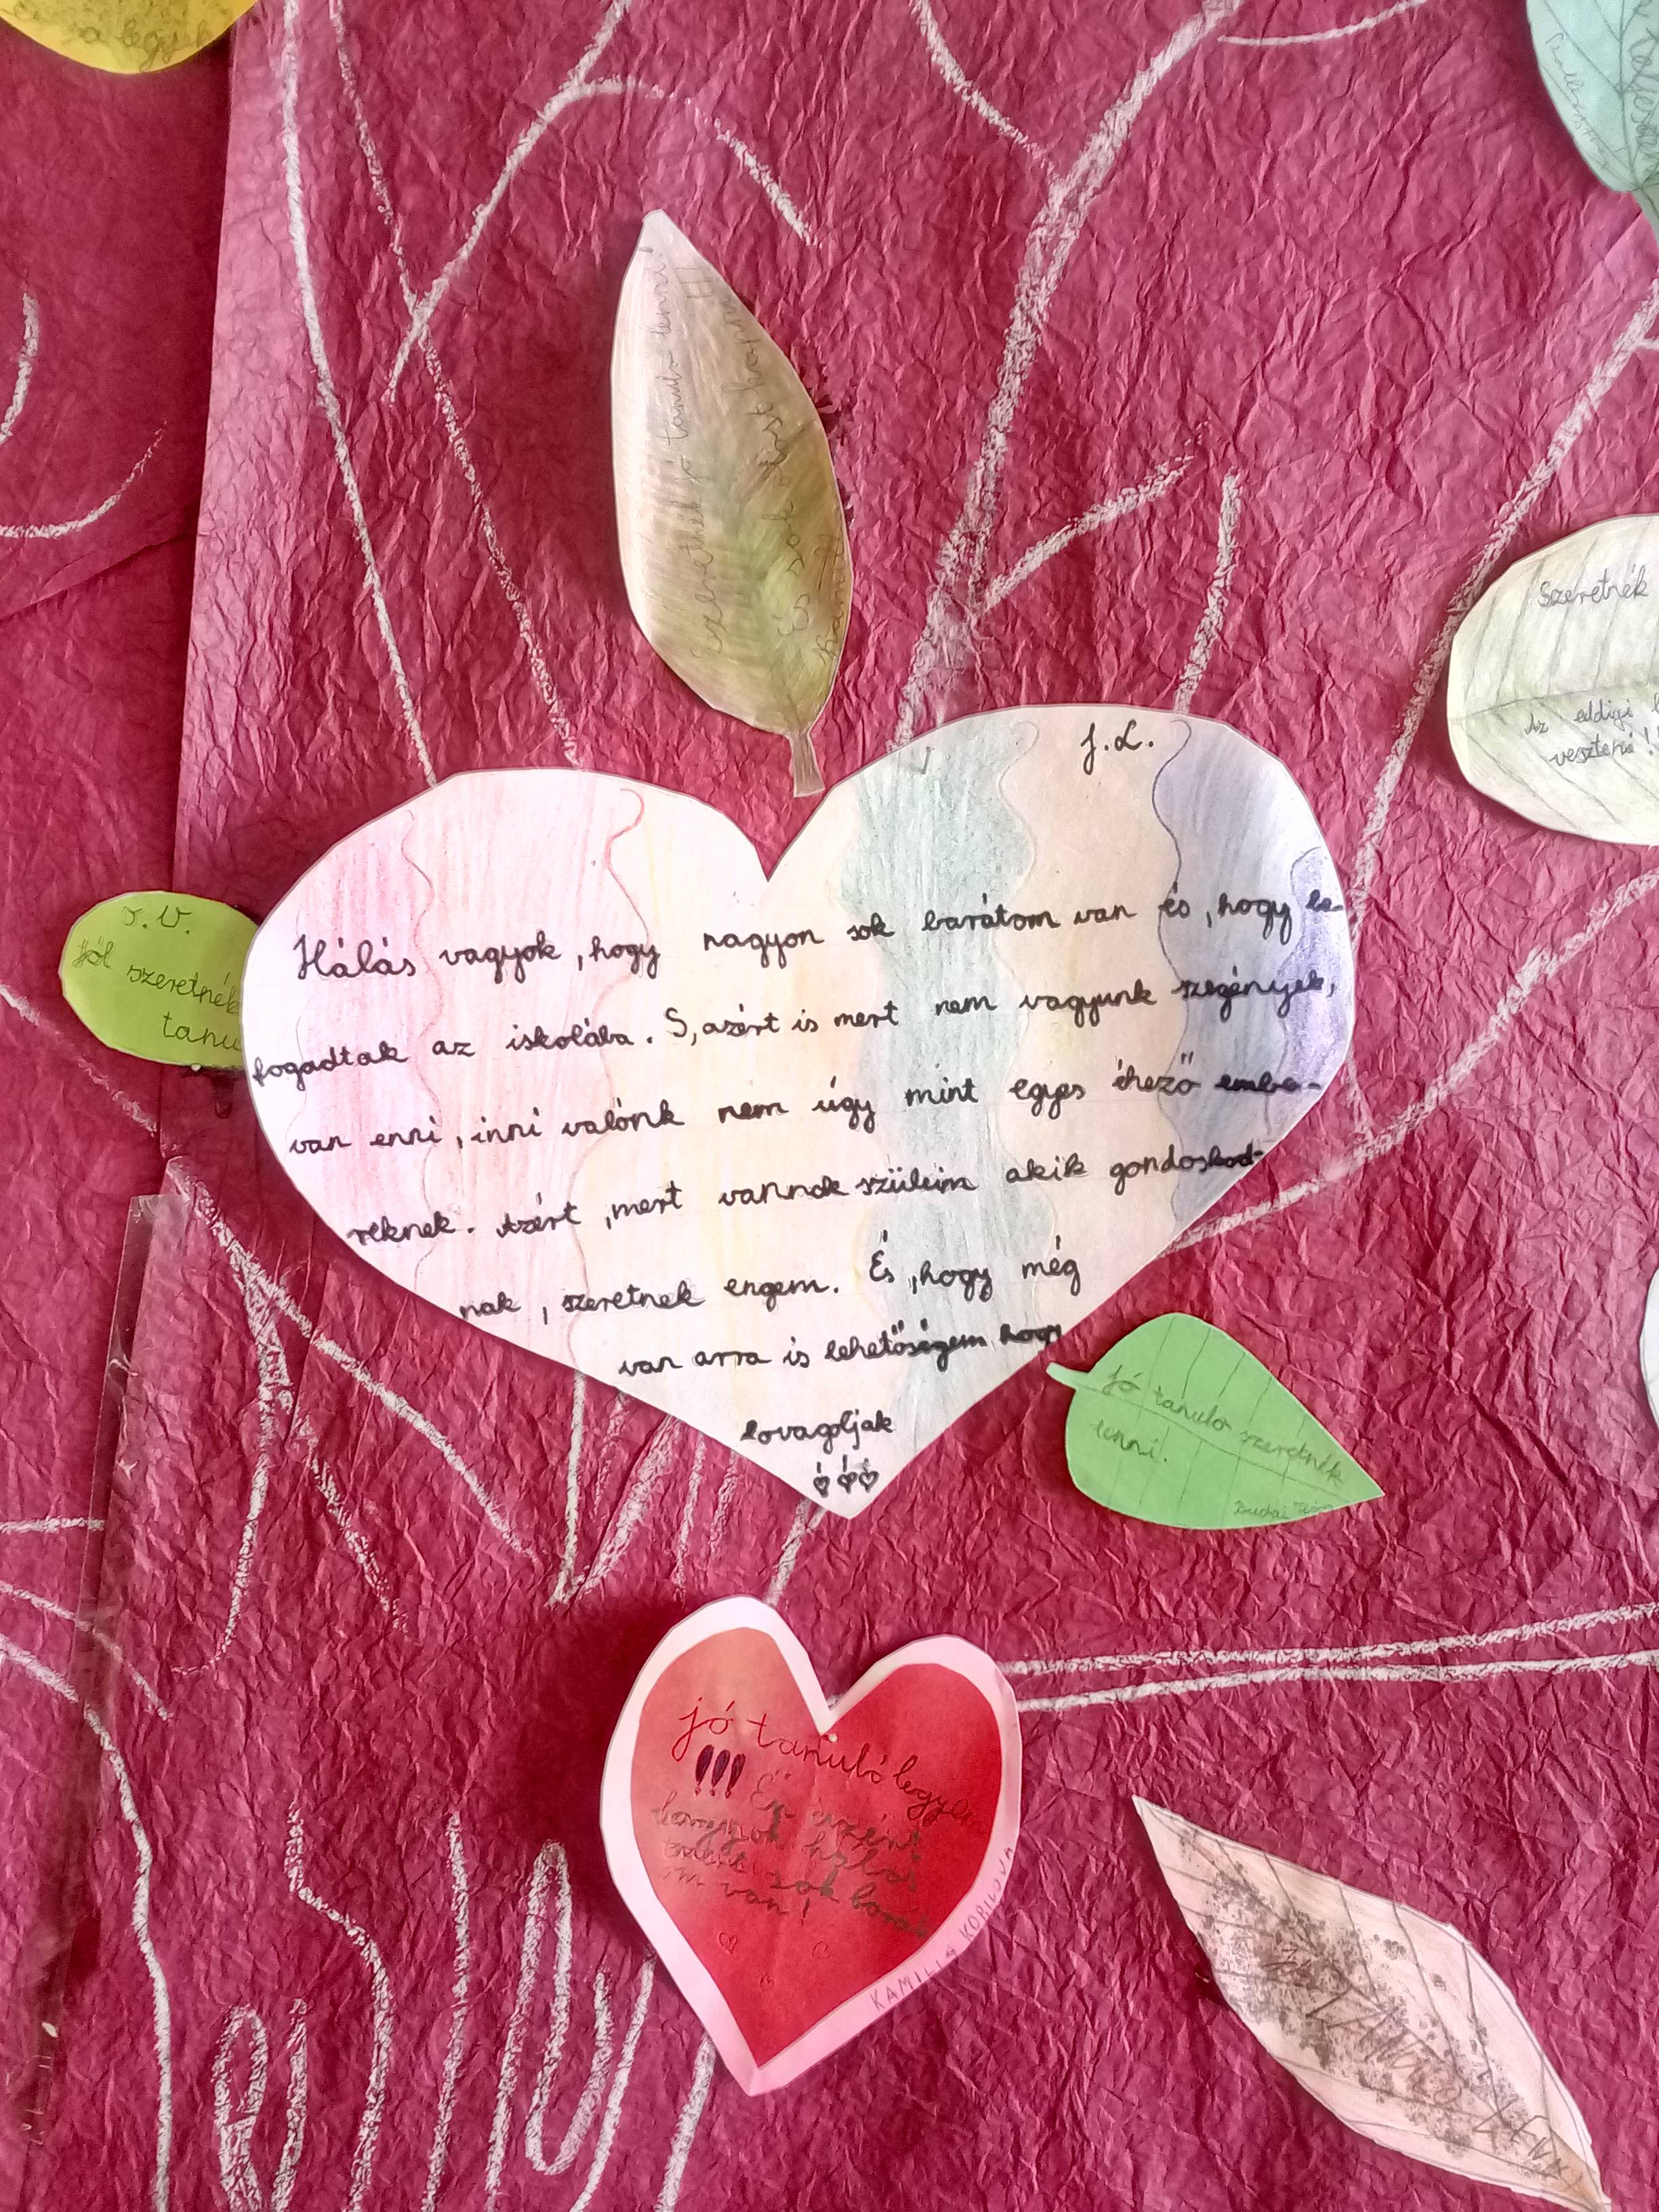 a legyek
Szeretnék jó tanuló lenni!
És sok
J. L.
Szeretnék
Az eddigi
veszteni!
J. V.
Jól szeretnék
tanu
Hálás vagyok, hogy nagyon sok barátom van és, hogy be-
fogadtak az iskolába. S, azért is mert nem vagyunk szegények,
van enni, inni valónk nem úgy mint egyes éhező embe-
reknek. Azért, mert vannak szüleim akik gondoskod-
nak, szeretnek engem. És, hogy még
van arra is lehetőségem hogy
lovagoljak
jó tanuló szeretnék
lenni.
Budai
jó tanuló legyen
!!! Én azért
vagyok hálás
mert sok barát
im van!
KAMILLA KORILOVA